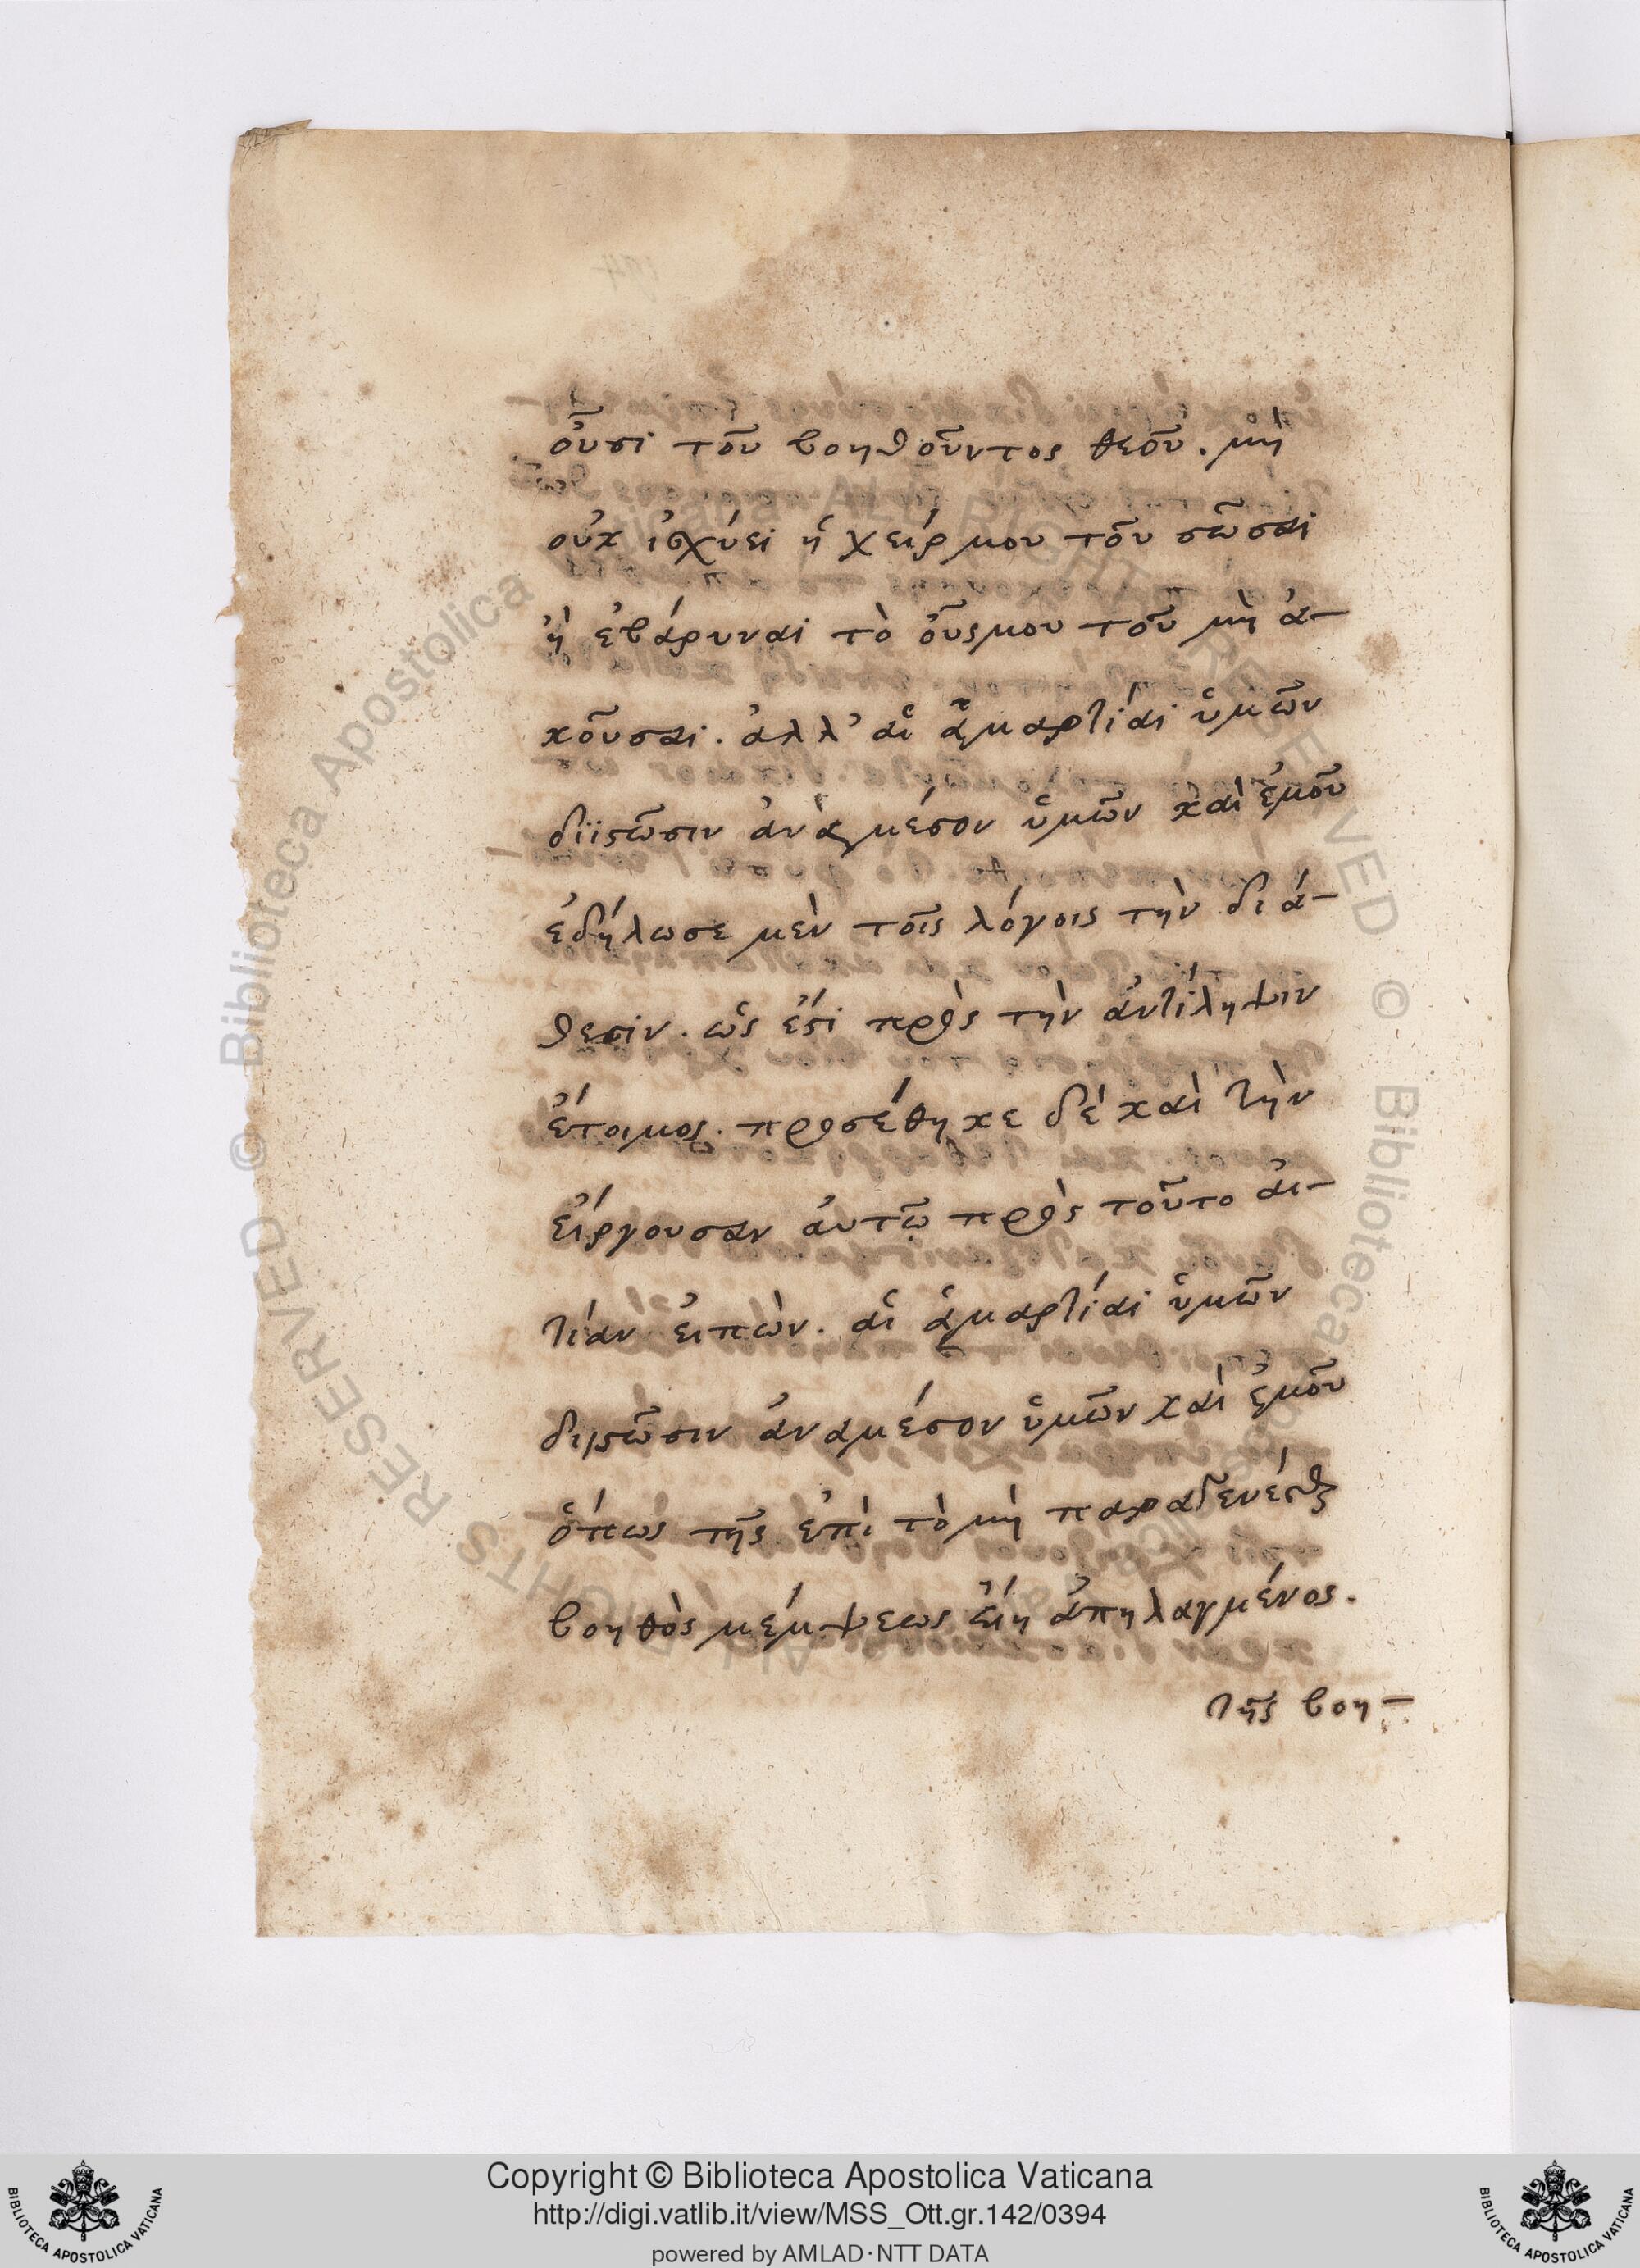 οὖσι τοῦ βοηθοῦντος θεοῦ. μὴ
οὐκ ἰσχύει ἡ χείρ μου τοῦ σῶσαι
ἢ ἐβάρυναι τὸ οὖς μου τοῦ μὴ ἀ-
κοῦσαι. ἀλλ' αἱ ἁμαρτίαι ὑμῶν
διϊστῶσιν ἀνὰ μέσον ὑμῶν καὶ ἐμοῦ
ἐδήλωσε μὲν τοῖς λόγοις τὴν διά-
θεσιν. ὡς ἔστι πρὸς τὴν ἀντίληψιν
ἕτοιμος. προσέθηκε δὲ καὶ τὴν
εἴργουσαν ἀυτῷ πρὸς τοῦτο ἀι-
τίαν ἐιπὼν. αἱ ἁμαρτίαι ὑμῶν
διιστῶσιν ἀναμέσον ὑμῶν καὶ ἐμοῦ
ὅπως τῆς ἐπὶ τὸ μὴ παραγενέσθαι
βοηθὸς μέμψεως εἴη ἀπηλαγμένος.
τῆς βοη-
Copyright © Biblioteca Apostolica Vaticana
http://digi.vatlib.it/view/MSS_Ott.gr.142/0394
powered by AMLAD·NTT DATA
BIBLIOTECA APOSTOLICA VATICANA
BIBLIOTECA APOSTOLICA VATICANA